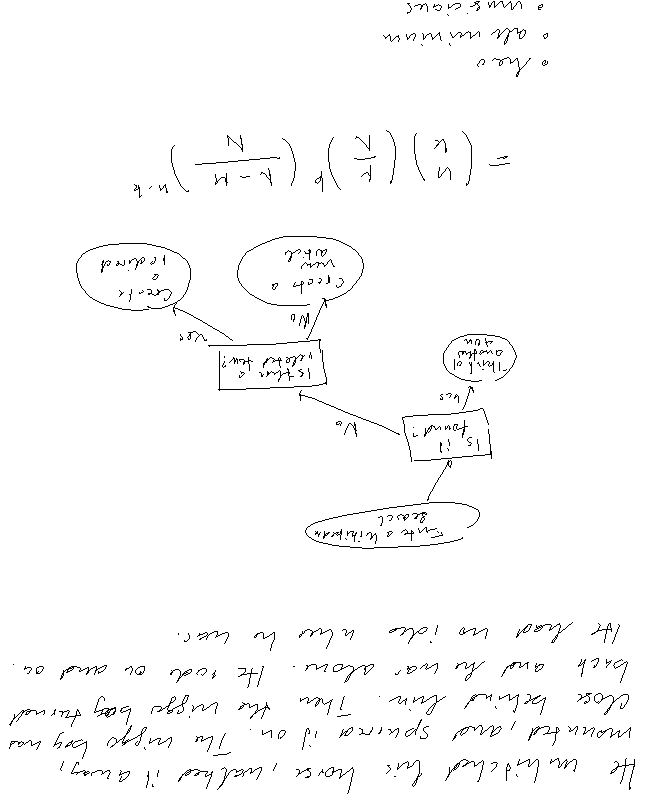 He unhitched his horse, walked it away,
mounted, and spurred it on. The nigger boy was
close behind him. Then the nigger boy turned
back and he was alone. He rode on and on.
He had no idea where he was.
Enter a Wikipedia
search
Is it
found?
Yes
No
Think of
another
Is there a
related
Yes
No
Create
a
redirect
Create a
new
article
= \binom{n}{k} \left( \frac{K}{N} \right)^k \left( \frac{N-K}{N} \right)^{n-k}
• aluminium
• musicians